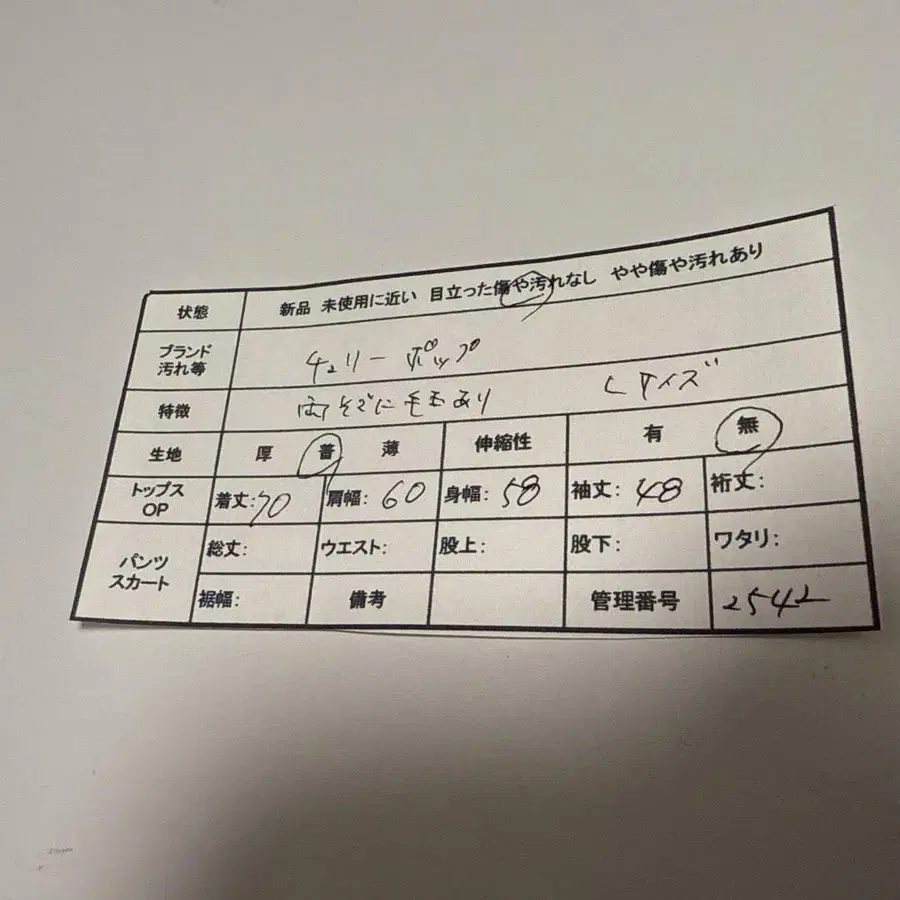 状態 新品 未使用に近い 目立った傷や汚れなし やや傷や汚れあり
ブランド
汚れ等
チェリーポップ
特徴 両そでに毛玉あり Lサイズ
生地 厚 普 薄 伸縮性 有 無
トップス
OP
着丈:70 肩幅:60 身幅:58 袖丈:48 裄丈:
パンツ
スカート
総丈: ウエスト: 股上: 股下: ワタリ:
裾幅: 備考 管理番号 2542